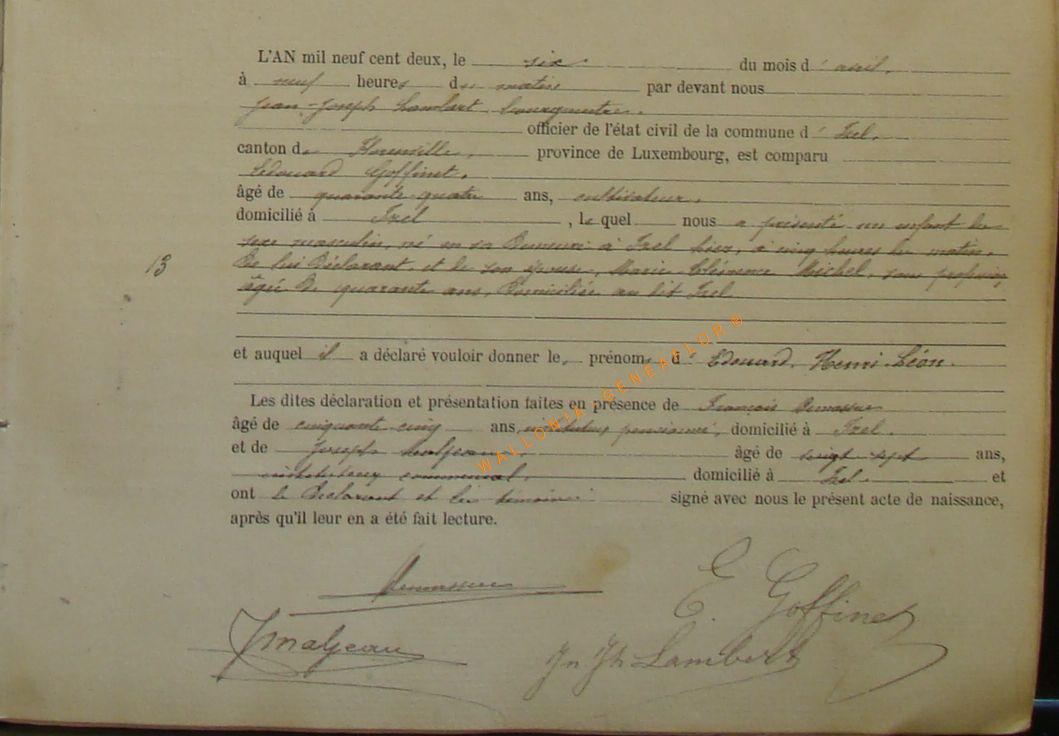 L'AN mil neuf cent deux, le six du mois d'avril,
à neuf heures du matin par devant nous
Jean-Joseph Lambert bourgmestre,
officier de l'état civil de la commune d'Izel,
canton de Florenville, province de Luxembourg, est comparu
Edouard Goffinet,
âgé de quarante quatre ans, cultivateur,
domicilié à Izel, lequel nous a présenté un enfant du
sexe masculin, né en sa demeure à Izel hier, à cinq heures du matin,
13
de lui déclarant, et de son épouse, Marie Clémence Michel, sans profession,
âgée de quarante ans, domiciliée au dit Izel
et auquel il a déclaré vouloir donner les prénoms d'Edouard, Henri-Léon.
Les dites déclaration et présentation faites en présence de François Demasseur
âgé de cinquante cinq ans, instituteur pensionné, domicilié à Izel,
et de Joseph Maljean âgé de vingt sept ans,
instituteur communal, domicilié à Izel. et
ont le déclarant et les témoins signé avec nous le présent acte de naissance,
après qu'il leur en a été fait lecture.
WALLONIA-GENEAFLOR ©
E. Goffinet
JMaljean
Jn Jh Lambert